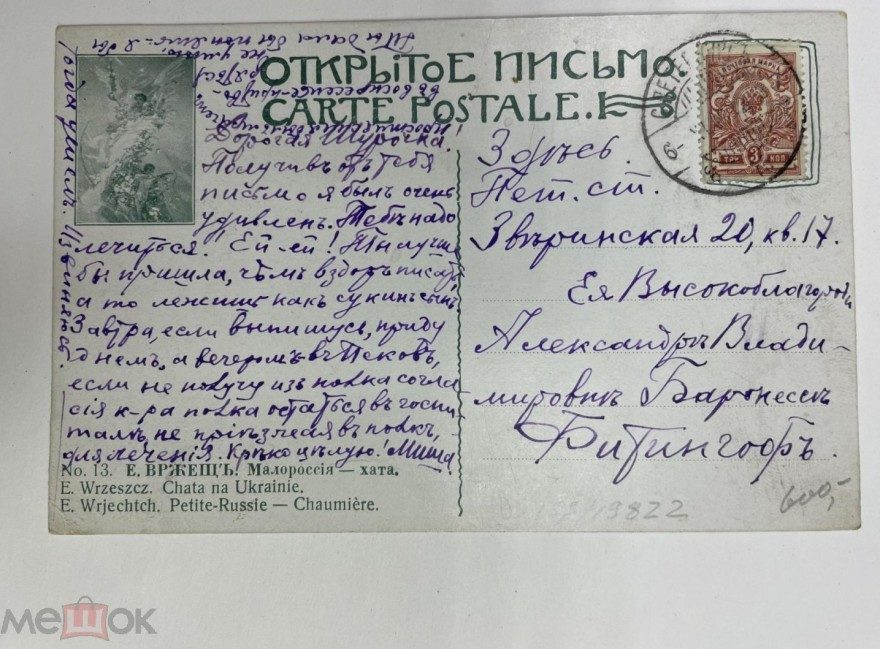 ОТКРЫТОЕ ПИСЬМО.
CARTE POSTALE.
Дорогая Шурочка.
Получивъ отъ тебя
письмо я былъ очень
удивленъ. Тебѣ надо
лечиться! Ей-ей! Ты лучше
бы пришла, чѣмъ вздоръ писать,
а то лежишь какъ сукинъ сынъ.
Завтра, если выпишусь, приду
днемъ, а вечеромъ въ Псковъ,
если не получу изъ полка согла
сія к-ра полка остаться въ госпи
талѣ, не пріѣзжая въ полкъ,
для леченія. Крѣпко цѣлую! Миша
Извиняюсь.
No. 13. Е. ВРЖЕЩЪ! Малороссія — хата.
E. Wrzeszcz. Chata na Ukrainie.
E. Wrjechtch. Petite-Russie — Chaumière.
ПОЧТОВАЯ МАРКА
3
ТРИ КОП
Здѣсь.
Пет. ст.
Звѣринская 20, кв. 17.
Ея Высокоблагородію
Александрѣ Влади-
мировнѣ Баронессѣ
Фитингофъ.
600,-
мешок